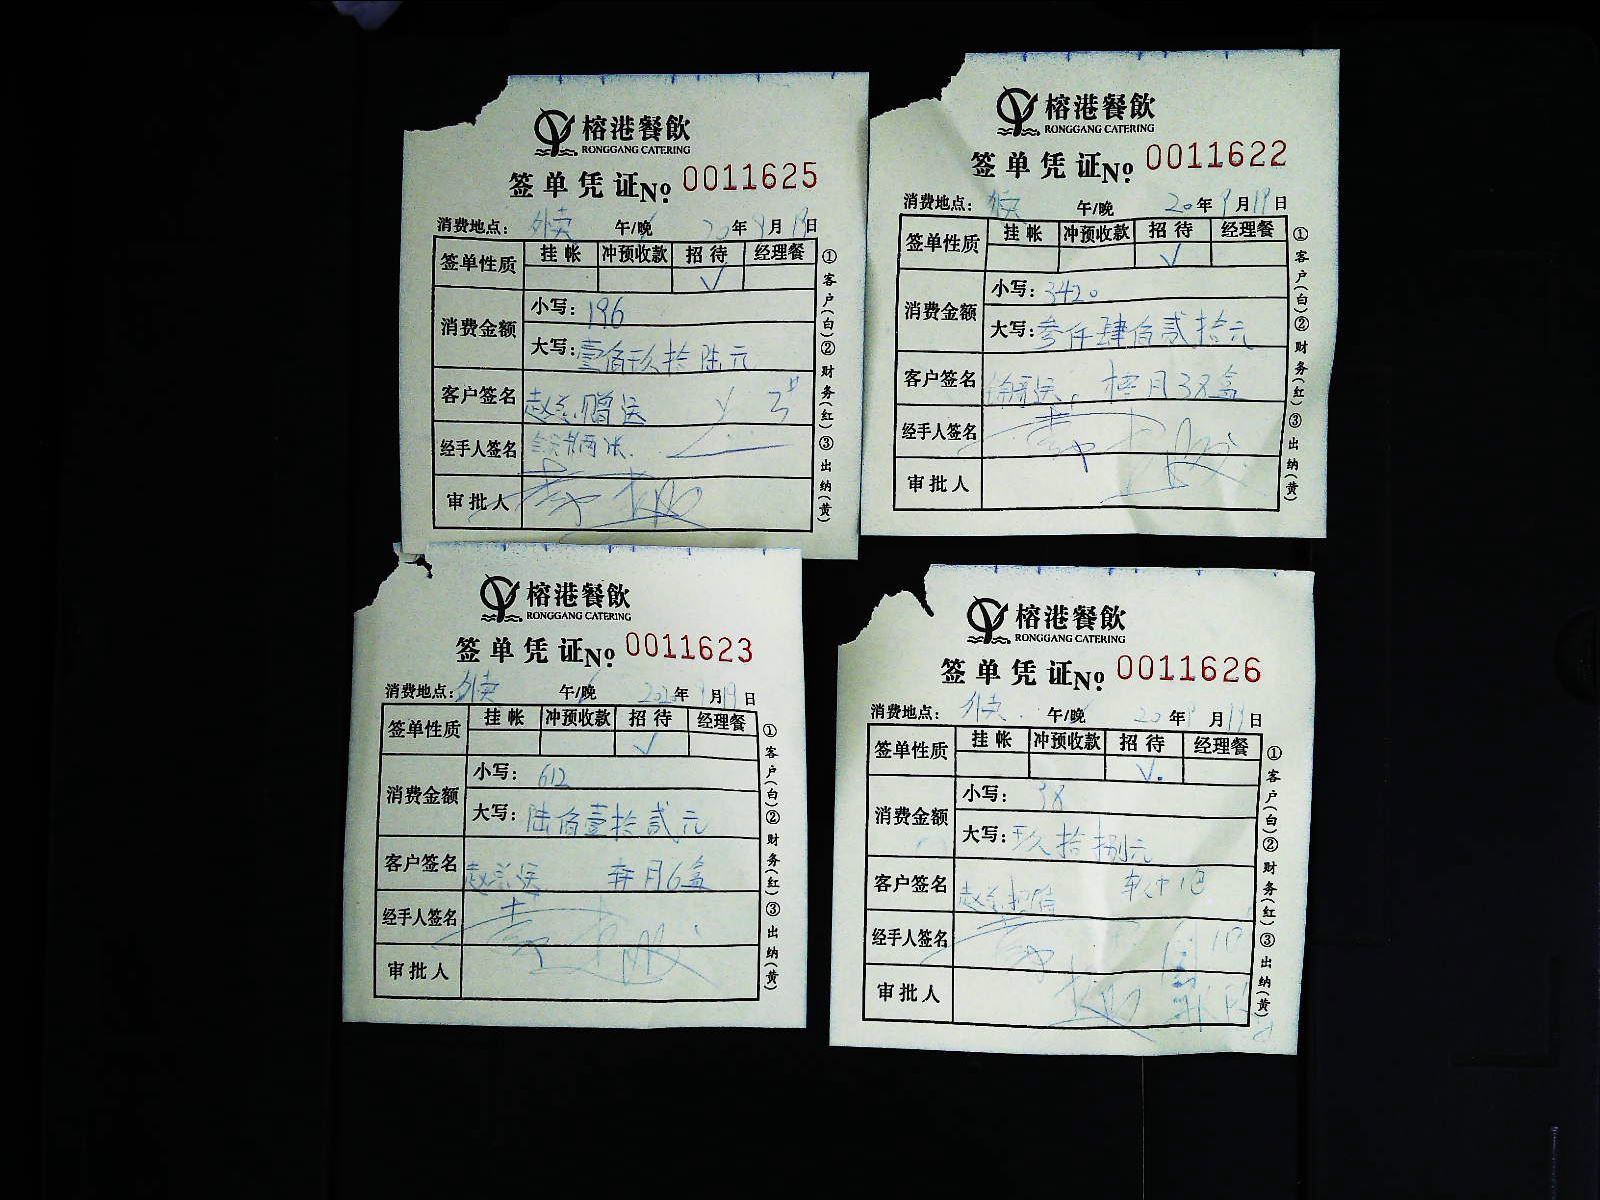 榕港餐飲
RONGGANG CATERING
签单凭证No. 0011625
消费地点: 外卖 午/晚 20年9月19日
签单性质 挂帐 冲预收款 招待 经理餐
√
消费金额 小写: 196
大写: 壹佰玖拾陆元
客户签名 赵总赠送
经手人签名
审批人
①客户(白)②财务(红)③出纳(黄)
榕港餐飲
RONGGANG CATERING
签单凭证No. 0011622
消费地点: 外卖 午/晚 20年9月19日
签单性质 挂帐 冲预收款 招待 经理餐
√
消费金额 小写: 3420
大写: 叁仟肆佰贰拾元
客户签名 月38盒
经手人签名
审批人
①客户(白)②财务(红)③出纳(黄)
榕港餐飲
RONGGANG CATERING
签单凭证No. 0011623
消费地点: 外卖 午/晚 2020年9月19日
签单性质 挂帐 冲预收款 招待 经理餐
√
消费金额 小写: 612
大写: 陆佰壹拾贰元
客户签名 赵总送 月6盒
经手人签名
审批人
①客户(白)②财务(红)③出纳(黄)
榕港餐飲
RONGGANG CATERING
签单凭证No. 0011626
消费地点: 外卖 午/晚 20年9月19日
签单性质 挂帐 冲预收款 招待 经理餐
√
消费金额 小写: 98
大写: 玖拾捌元
客户签名 赵总招待
经手人签名
审批人
①客户(白)②财务(红)③出纳(黄)